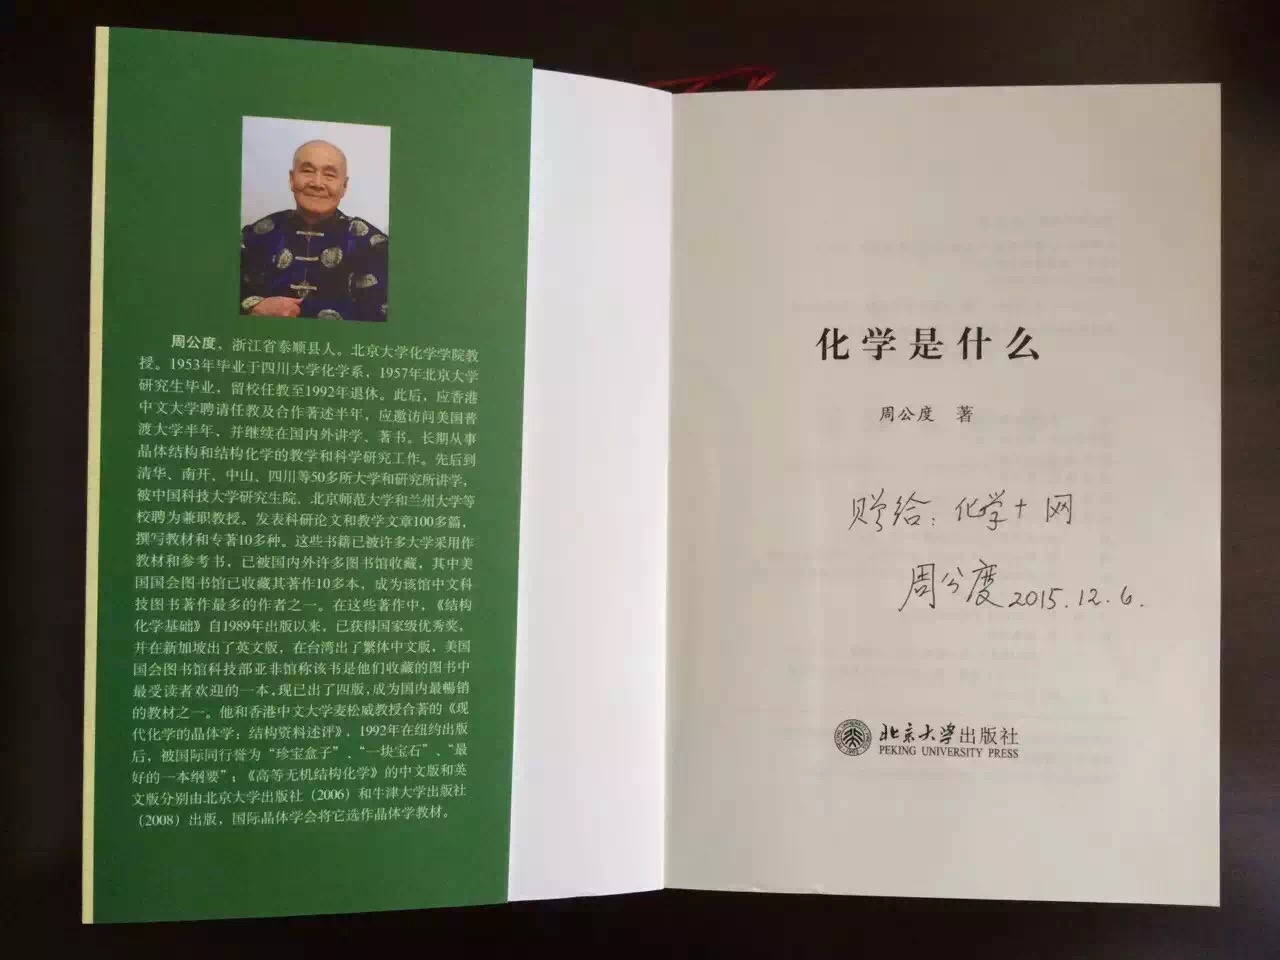 周公度，浙江省泰顺县人。北京大学化学学院教
授。1953年毕业于四川大学化学系，1957年北京大学
研究生毕业，留校任教至1992年退休。此后，应香港
中文大学聘请任教及合作著述半年，应邀访问美国普
渡大学半年，并继续在国内外讲学、著书。长期从事
晶体结构和结构化学的教学和科学研究工作。先后到
清华、南开、中山、四川等50多所大学和研究所讲学，
被中国科技大学研究生院、北京师范大学和兰州大学等
校聘为兼职教授。发表科研论文和教学文章100多篇，
撰写教材和专著10多种。这些书籍已被许多大学采用作
教材和参考书，已被国内外许多图书馆收藏，其中美
国国会图书馆已收藏其著作10多本，成为该馆中文科
技图书著作最多的作者之一。在这些著作中，《结构
化学基础》自1989年出版以来，已获得国家级优秀奖，
并在新加坡出了英文版，在台湾出了繁体中文版，美国
国会图书馆科技部亚非馆称该书是他们收藏的图书中
最受读者欢迎的一本，现已出了四版，成为国内最畅销
的教材之一。他和香港中文大学麦松威教授合著的《现
代化学的晶体学：结构资料述评》，1992年在纽约出版
后，被国际同行誉为“珍宝盒子”、“一块宝石”、“最
好的一本纲要”；《高等无机结构化学》的中文版和英
文版分别由北京大学出版社（2006）和牛津大学出版社
（2008）出版，国际晶体学会将它选作晶体学教材。
化学是什么
周公度 著
赠给：化学+网
周公度 2015.12.6.
北京大学出版社
PEKING UNIVERSITY PRESS